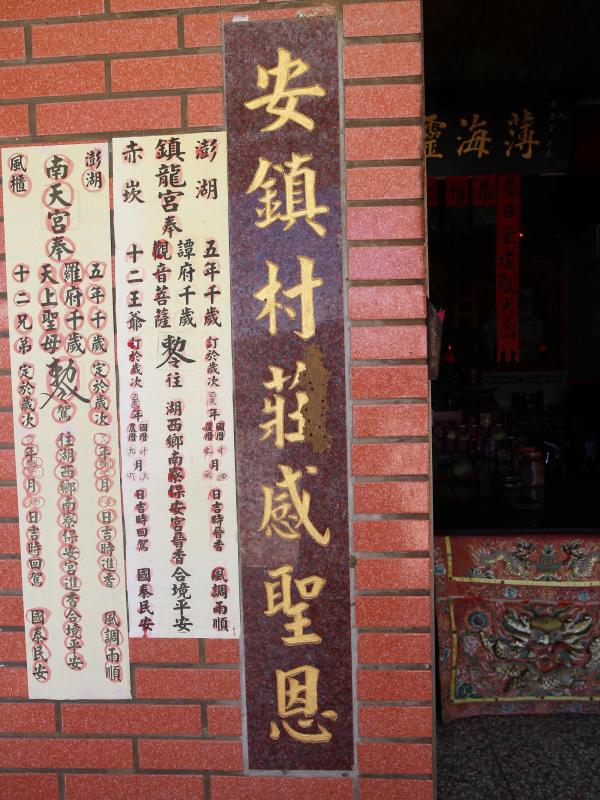 薄海靈
安鎮村莊感聖恩
澎湖 五年千歲 訂於歲次 年 國曆十月四 農曆九六 日吉時晉香 風調雨順
鎮龍宮奉 譚府千歲 觀音菩薩 敕令往 湖西鄉南寮保安宮晉香合境平安
赤崁 十二王爺 訂於歲次 年 國曆十月 農曆九 日吉時回駕 國泰民安
澎湖 五年千歲 定於歲次 年 月 日吉時進香 風調雨順
南天宮奉 羅府千歲 天上聖母 敕令 駕往湖西鄉南寮保安宮進香合境平安
風櫃 十二兄弟 定於歲次 年 月 日吉時回駕 國泰民安